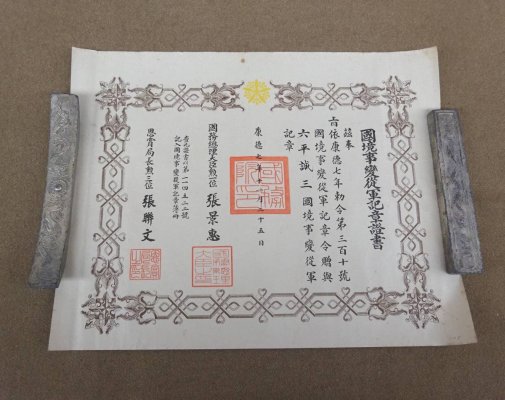 國境事變從軍記章證書
茲奉
旨依康德七年勅令第三百十號
國境事變從軍記章令贈與
六平誠三國境事變從軍
記章
康德七年十一月二十五日
國務總理大臣勳一位 張景惠
此證書以第一一四五二二號
記入國境事變從軍記章簿冊
恩賞局長勳三位 張聯文